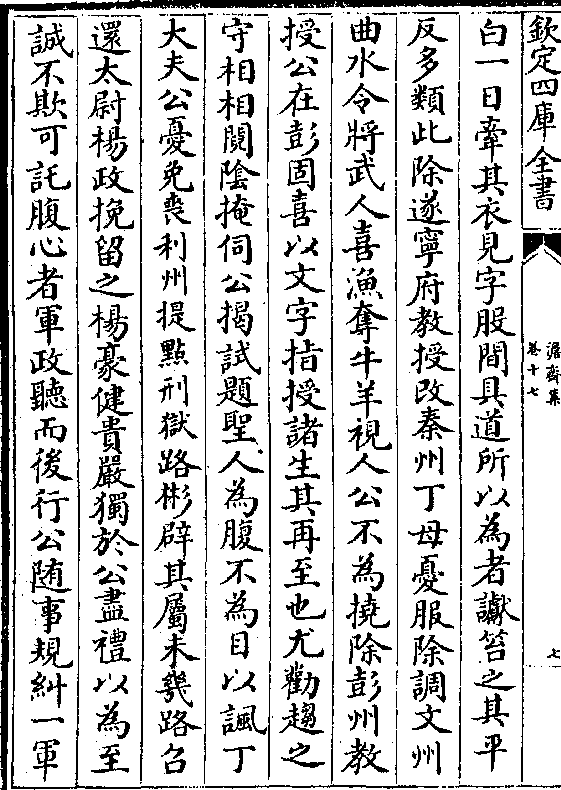 欽定四庫全書
澹齋集
卷十七
七
白一日牽其衣見字股間具道所以為者讞笞之其平
反多類此除遂寧府教授改秦州丁母憂服除調文州
曲水令將武人喜漁奪牛羊視人公不為撓除彭州教
授公在彭固喜以文字指授諸生其再至也尤勸趨之
守相相鬩陰掩伺公揭試題聖人為腹不為目以諷丁
大夫公憂免喪利州提點刑獄路彬辟其屬未幾路召
還太尉楊政挽留之楊豪健貴嚴獨於公盡禮以為至
誠不欺可託腹心者軍政聽而後行公随事規糾一軍